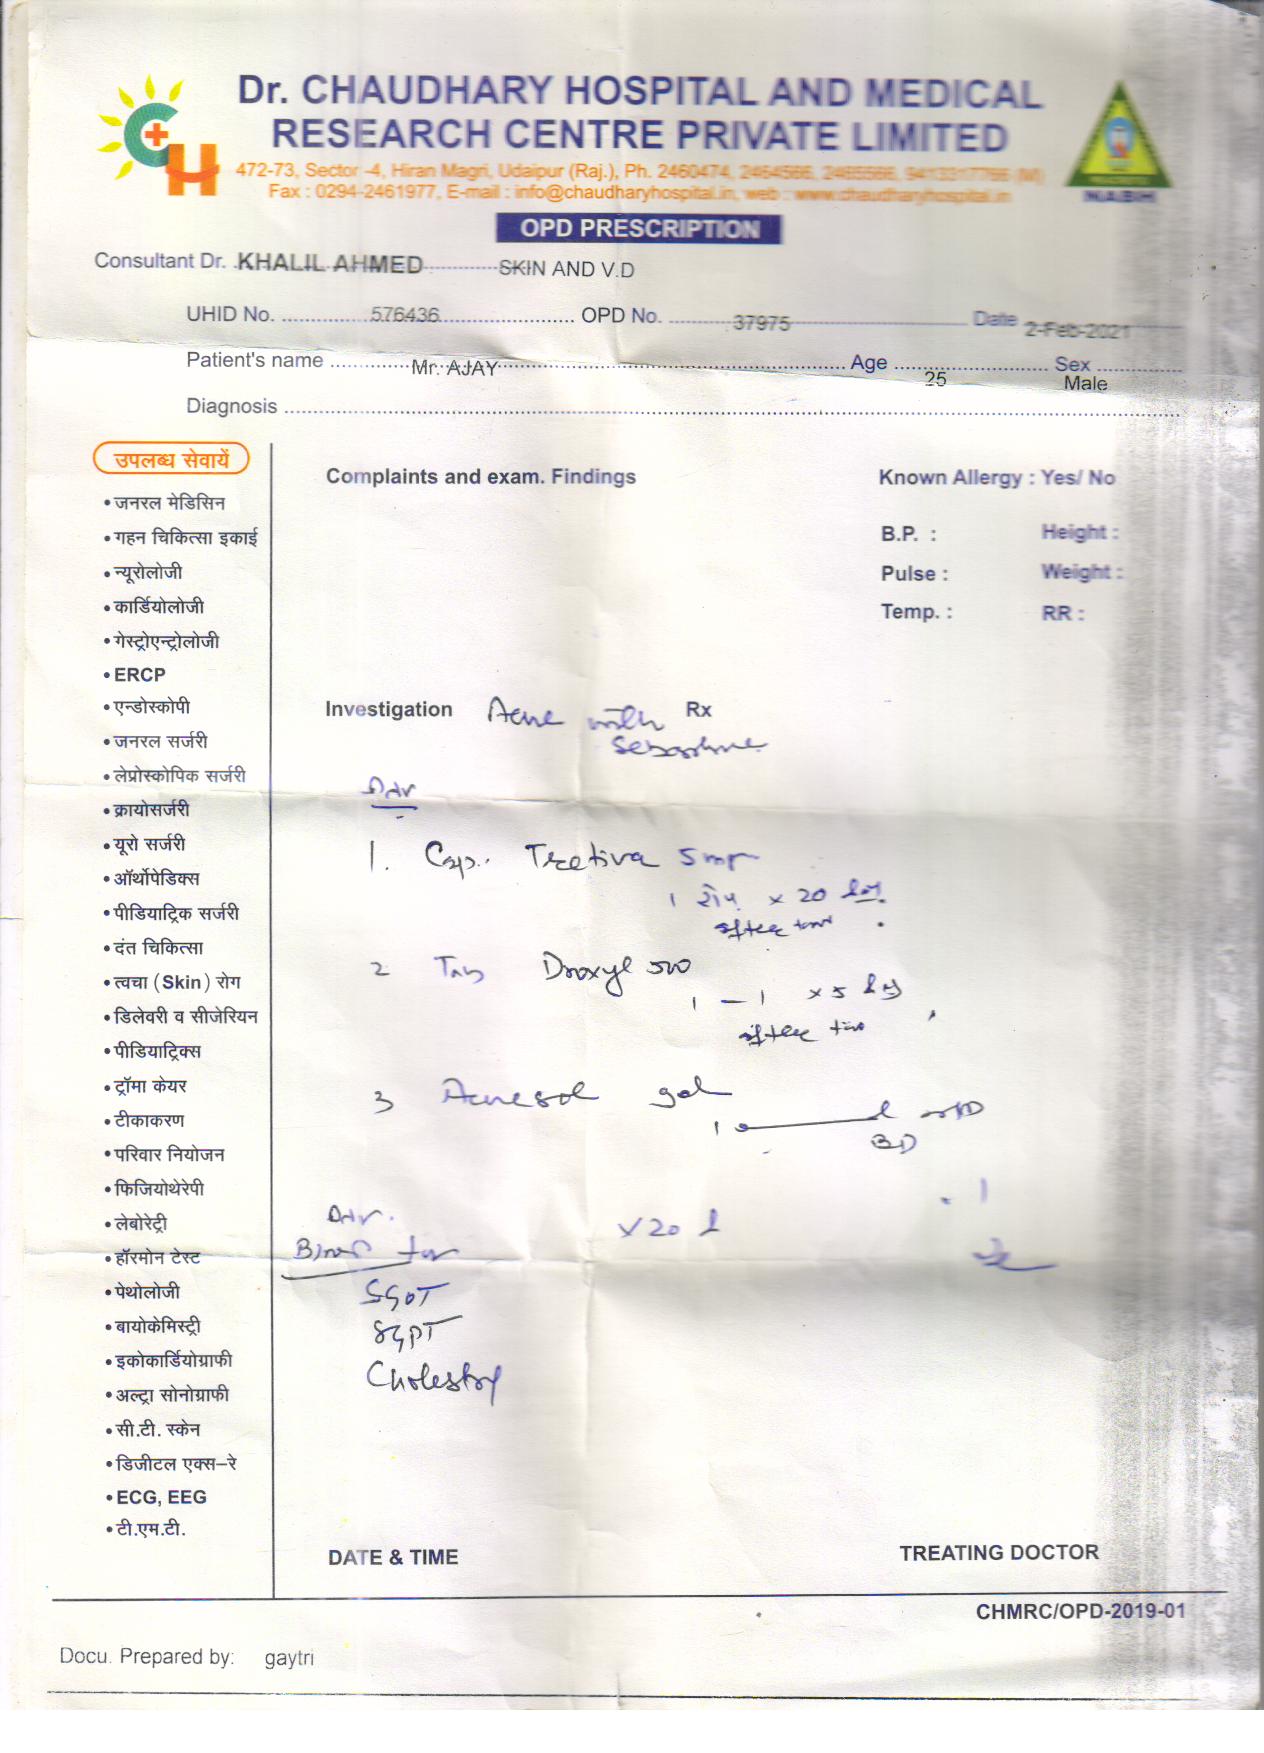 Dr. CHAUDHARY HOSPITAL AND MEDICAL
RESEARCH CENTRE PRIVATE LIMITED
472-73, Sector -4, Hiran Magri, Udaipur (Raj.), Ph. 2460474, 2464566, 2465566, 9413317766 (M)
Fax : 0294-2461977, E-mail : info@chaudharyhospital.in, web : www.chaudharyhospital.in
NABH
OPD PRESCRIPTION
Consultant Dr. KHALIL AHMED SKIN AND V.D
UHID No. 576436 OPD No. 37975 Date 2-Feb-2021
Patient's name Mr. AJAY Age 25 Sex Male
Diagnosis
उपलब्ध सेवायें
• जनरल मेडिसिन
• गहन चिकित्सा इकाई
• न्यूरोलोजी
• कार्डियोलोजी
• गेस्ट्रोएन्ट्रोलोजी
• ERCP
• एन्डोस्कोपी
• जनरल सर्जरी
• लेप्रोस्कोपिक सर्जरी
• क्रायोसर्जरी
• यूरो सर्जरी
• ऑर्थोपेडिक्स
• पीडियाट्रिक सर्जरी
• दंत चिकित्सा
• त्वचा (Skin) रोग
• डिलेवरी व सीजेरियन
• पीडियाट्रिक्स
• ट्रॉमा केयर
• टीकाकरण
• परिवार नियोजन
• फिजियोथेरेपी
• लेबोरेट्री
• हॉरमोन टेस्ट
• पेथोलोजी
• बायोकेमिस्ट्री
• इकोकार्डियोग्राफी
• अल्ट्रा सोनोग्राफी
• सी.टी. स्केन
• डिजीटल एक्स-रे
• ECG, EEG
• टी.एम.टी.
Complaints and exam. Findings
Known Allergy : Yes/ No
B.P. : Height :
Pulse : Weight :
Temp. : RR :
Investigation Acne with Rx
Adv
1. Cap. Tretiva 5 mg
1 रोज x 20
after
2 Tab Droxyl 500
1 - 1 x 5
after
3 Acnesol gel
1
BD
Adv.
x 20
SGOT
SGPT
DATE & TIME
TREATING DOCTOR
CHMRC/OPD-2019-01
Docu. Prepared by: gaytri